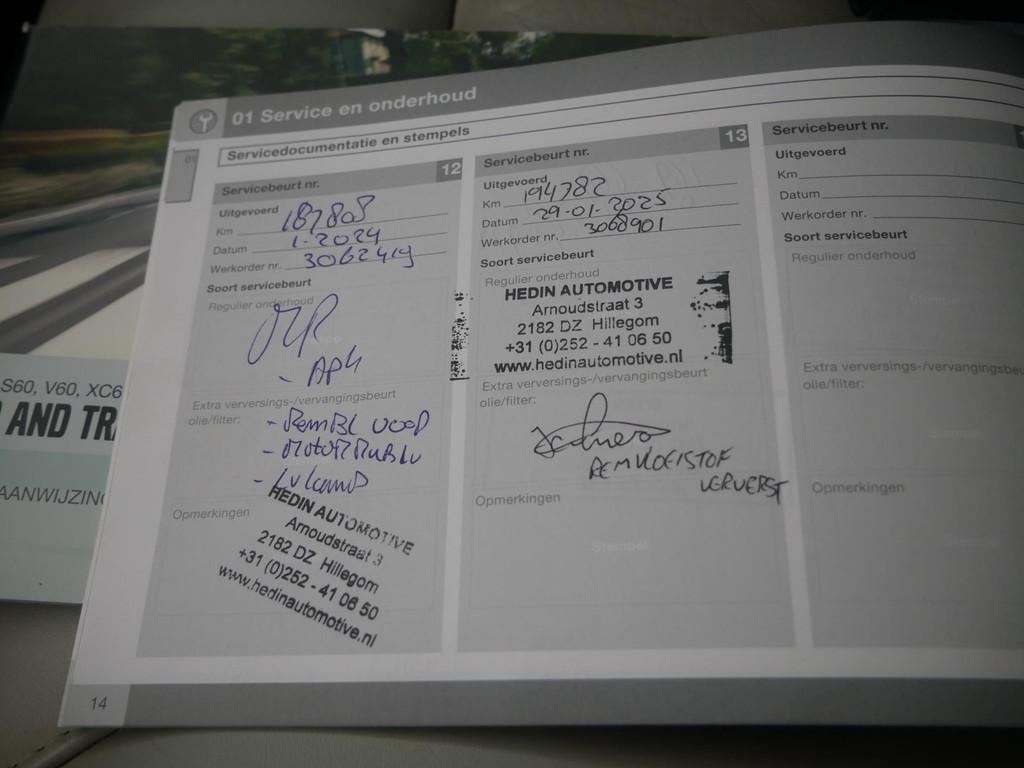 01 Service en onderhoud
01
Servicedocumentatie en stempels
Servicebeurt nr. 12
Uitgevoerd
Km 187803
Datum 1-2024
Werkorder nr. 3062419
Soort servicebeurt
Regulier onderhoud
- APK
Extra verversings-/vervangingsbeurt
olie/filter:
- RemBL voor
-
-
Opmerkingen
HEDIN AUTOMOTIVE
Arnoudstraat 3
2182 DZ Hillegom
+31 (0)252 - 41 06 50
www.hedinautomotive.nl
Servicebeurt nr. 13
Uitgevoerd
Km 194782
Datum 29-01-2025
Werkorder nr. 3068901
Soort servicebeurt
Regulier onderhoud
HEDIN AUTOMOTIVE
Arnoudstraat 3
2182 DZ Hillegom
+31 (0)252 - 41 06 50
www.hedinautomotive.nl
Extra verversings-/vervangingsbeurt
olie/filter:
REMVLOEISTOF
VERVERST
Opmerkingen
Stempel
Servicebeurt nr.
Uitgevoerd
Km
Datum
Werkorder nr.
Soort servicebeurt
Regulier onderhoud
Stempel
Extra verversings-/vervangingsbeu
olie/filter:
Stempel
Opmerkingen
Stempel
14
S60, V60, XC6
AND TR
AANWIJZING